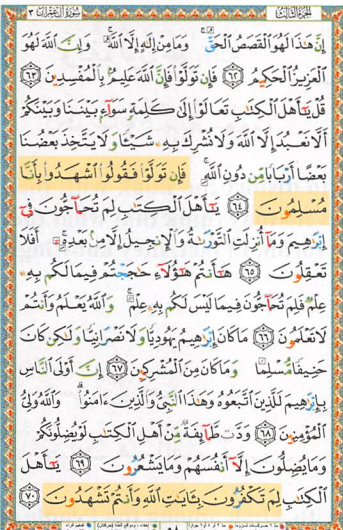 الجزء الثالث سورة آل عمران ٣
إِنَّ هَٰذَا لَهُوَ الْقَصَصُ الْحَقُّ ۚ وَمَا مِنْ إِلَٰهٍ إِلَّا اللَّهُ ۚ وَإِنَّ اللَّهَ لَهُوَ
الْعَزِيزُ الْحَكِيمُ ٦٢ فَإِن تَوَلَّوْا فَإِنَّ اللَّهَ عَلِيمٌ بِالْمُفْسِدِينَ ٦٣
قُلْ يَا أَهْلَ الْكِتَابِ تَعَالَوْا إِلَىٰ كَلِمَةٍ سَوَاءٍ بَيْنَنَا وَبَيْنَكُمْ
أَلَّا نَعْبُدَ إِلَّا اللَّهَ وَلَا نُشْرِكَ بِهِ شَيْئًا وَلَا يَتَّخِذَ بَعْضُنَا
بَعْضًا أَرْبَابًا مِّن دُونِ اللَّهِ ۚ فَإِن تَوَلَّوْا فَقُولُوا اشْهَدُوا بِأَنَّا
مُسْلِمُونَ ٦٤ يَا أَهْلَ الْكِتَابِ لِمَ تُحَاجُّونَ فِي
إِبْرَاهِيمَ وَمَا أُنزِلَتِ التَّوْرَاةُ وَالْإِنجِيلُ إِلَّا مِن بَعْدِهِ ۚ أَفَلَا
تَعْقِلُونَ ٦٥ هَا أَنتُمْ هَٰؤُلَاءِ حَاجَجْتُمْ فِيمَا لَكُم بِهِ
عِلْمٌ فَلِمَ تُحَاجُّونَ فِيمَا لَيْسَ لَكُم بِهِ عِلْمٌ ۚ وَاللَّهُ يَعْلَمُ وَأَنتُمْ
لَا تَعْلَمُونَ ٦٦ مَا كَانَ إِبْرَاهِيمُ يَهُودِيًّا وَلَا نَصْرَانِيًّا وَلَٰكِن كَانَ
حَنِيفًا مُّسْلِمًا وَمَا كَانَ مِنَ الْمُشْرِكِينَ ٦٧ إِنَّ أَوْلَى النَّاسِ
بِإِبْرَاهِيمَ لَلَّذِينَ اتَّبَعُوهُ وَهَٰذَا النَّبِيُّ وَالَّذِينَ آمَنُوا ۗ وَاللَّهُ وَلِيُّ
الْمُؤْمِنِينَ ٦٨ وَدَّت طَّائِفَةٌ مِّنْ أَهْلِ الْكِتَابِ لَوْ يُضِلُّونَكُمْ
وَمَا يُضِلُّونَ إِلَّا أَنفُسَهُمْ وَمَا يَشْعُرُونَ ٦٩ يَا أَهْلَ
الْكِتَابِ لِمَ تَكْفُرُونَ بِآيَاتِ اللَّهِ وَأَنتُمْ تَشْهَدُونَ ٧٠